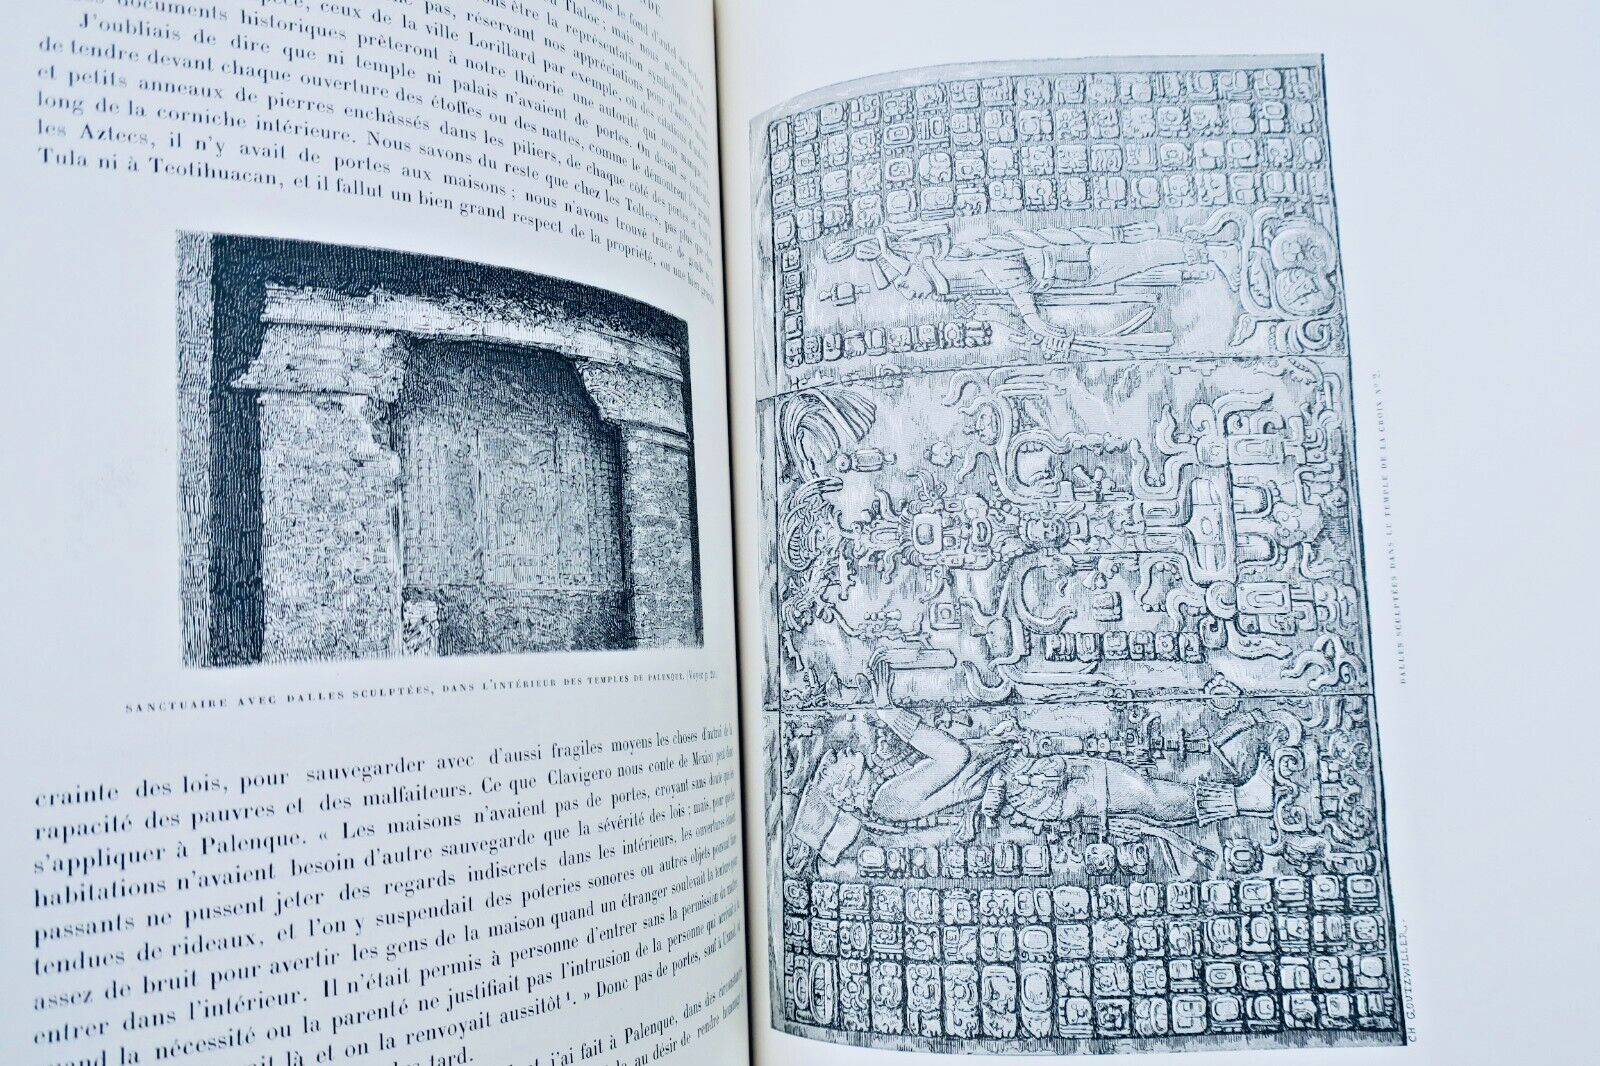 pas, réservant nos appréciations pour d'autres
documents historiques prêteront à notre théorie une autorité qui
J'oubliais de dire que ni temple ni palais n'avaient de portes. On devait se
de tendre devant chaque ouverture des étoffes ou des nattes, comme le démontrent
et petits anneaux de pierres enchâssés dans les piliers, de chaque côté des portes et
long de la corniche intérieure. Nous savons du reste que chez les Toltecs, pas plus que
les Aztecs, il n'y avait de portes aux maisons; nous n'avons trouvé trace de gonds
Tula ni à Teotihuacan, et il fallut un bien grand respect de la propriété, ou une
SANCTUAIRE AVEC DALLES SCULPTÉES, DANS L'INTÉRIEUR DES TEMPLES DE PALENQUE. (Voyez p.
crainte des lois, pour sauvegarder avec d'aussi fragiles moyens les choses d'autrui de la
rapacité des pauvres et des malfaiteurs. Ce que Clavigero nous conte de Mexico peut
s'appliquer à Palenque. « Les maisons n'avaient pas de portes, croyant sans doute que
habitations n'avaient besoin d'autre sauvegarde que la sévérité des lois; mais, pour que
passants ne pussent jeter des regards indiscrets dans les intérieurs, les ouvertures étaient
tendues de rideaux, et l'on y suspendait des poteries sonores ou autres objets pouvant faire
assez de bruit pour avertir les gens de la maison quand un étranger soulevait la tenture pour
entrer dans l'intérieur. Il n'était permis à personne d'entrer sans la permission du maître,
quand la nécessité ou la parenté ne justifiait pas l'intrusion de la personne qui
là et on la renvoyait aussitôt 1. » Donc pas de portes, sauf à
tard.
j'ai fait à Palenque, dans des circonstances
au désir de rendre
DALLES SCULPTÉES DANS LE TEMPLE DE LA CROIX Nº 2.
CH GOUTZWILLER.